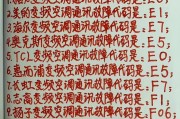 变频空调通讯故障代码是: E1;
2.美的变频空调通讯故障代码是: E1;
3.海尔变频空调通讯故障代码是: E7;
4.奥克斯变频空调通讯故障代码是: E5;
5.TCL变频空调通讯故障代码是: E0;
6.惠而浦变频空调通讯故障代码是: E5;
7.长虹变频空调通讯故障代码是: F7;
8.志高变频空调通讯故障代码是: F1;
9.扬子变频空调通讯故障代码是: F06;